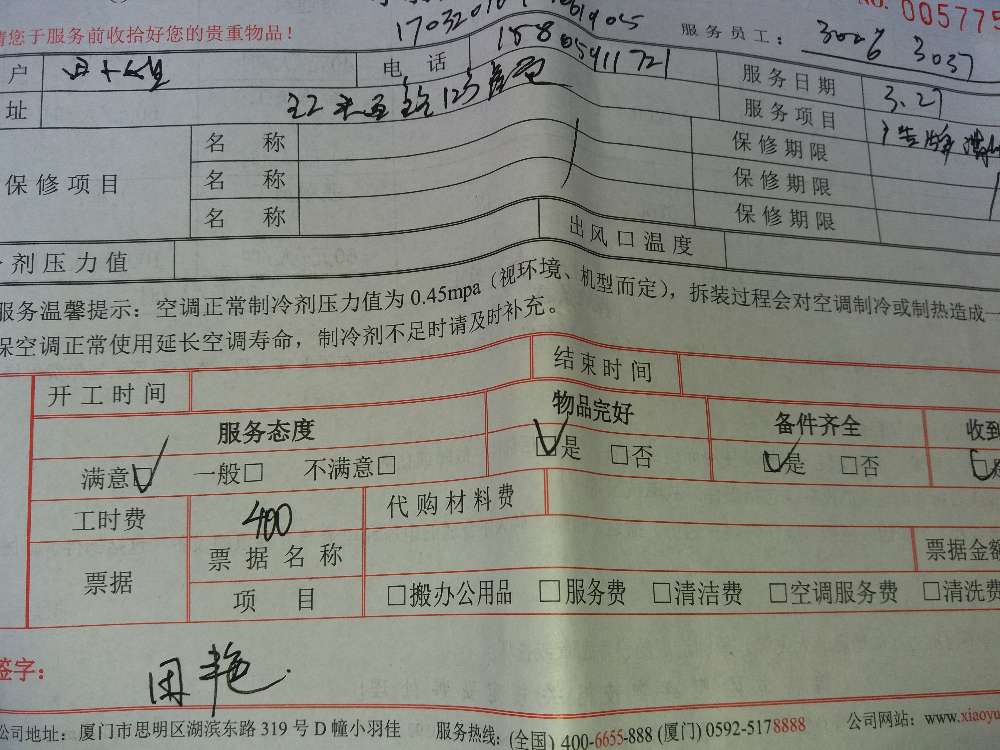 请您于服务前收拾好您的贵重物品！ 服务员工： 3026 3037 NO. 005775
户 电 话 15880 服务日期 3.27
址 123 服务项目 广告牌清
保修项目 名 称 保修期限
名 称 保修期限
名 称 保修期限
剂压力值 出风口温度
服务温馨提示：空调正常制冷剂压力值为 0.45mpa（视环境、机型而定），拆装过程会对空调制冷或制热造成一
保空调正常使用延长空调寿命，制冷剂不足时请及时补充。
开工时间 结束时间
服务态度 物品完好 备件齐全 收到
满意□ 一般□ 不满意□ □是 □否 □是 □否
工时费 400 代购材料费
票据 票据名称 票据金额
项 目 □搬办公用品 □服务费 □清洁费 □空调服务费 □清洗费
签字： 艳
公司地址：厦门市思明区湖滨东路 319 号 D 幢小羽佳 服务热线：(全国) 400-6655-888 (厦门) 0592-5178888 公司网站：www.xiaoyu